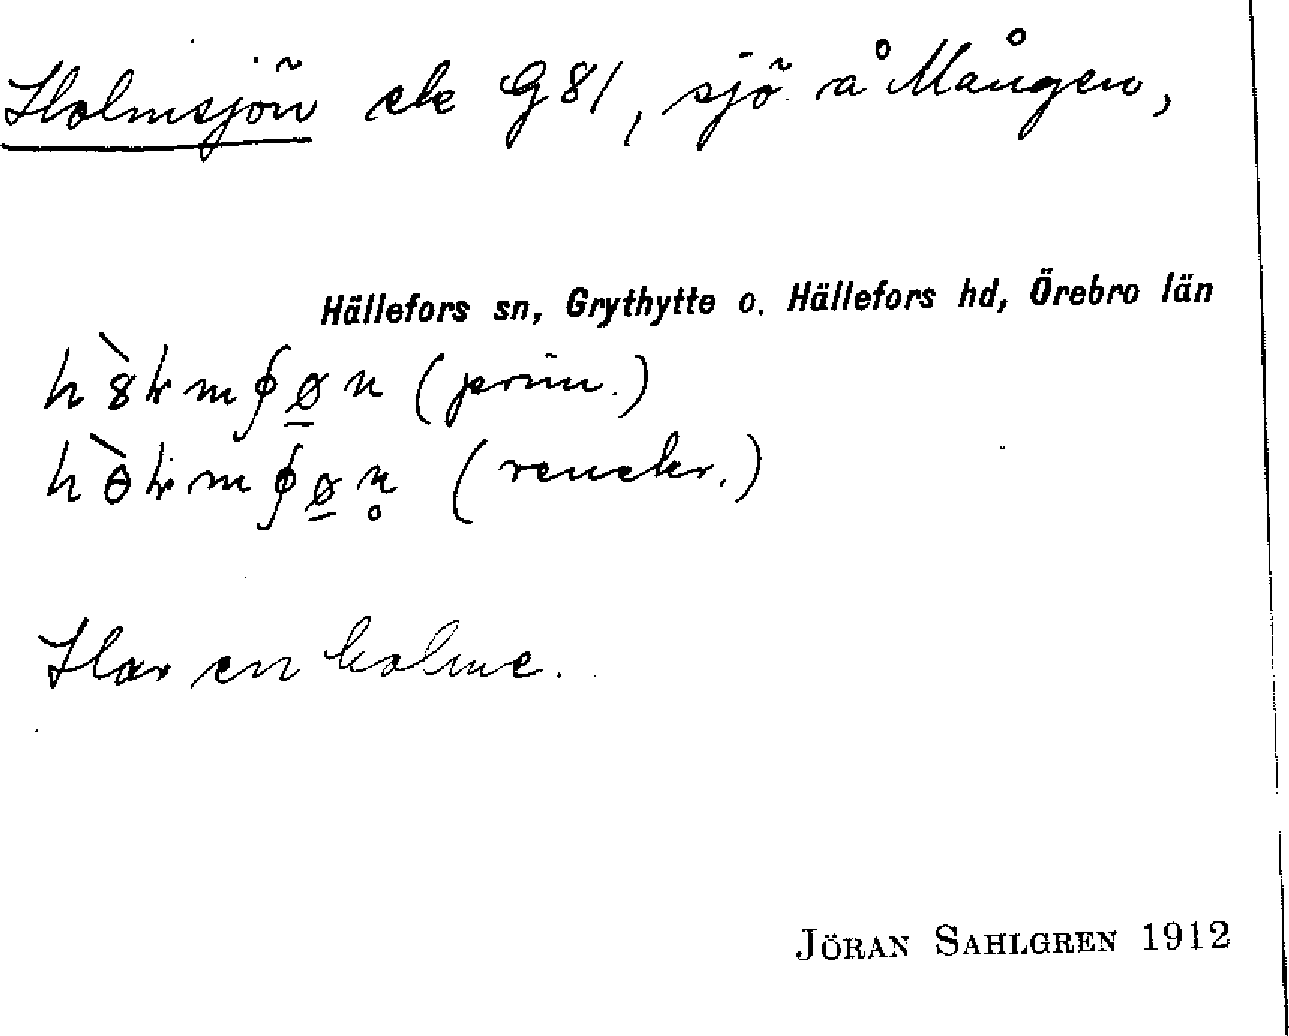 Holmsjön ek G81, sjö å Mången,
Hällefors sn, Grythytte o. Hällefors hd, Örebro län
(prim.)
(
Har en holme.
JÖRAN SAHLGREN 1912